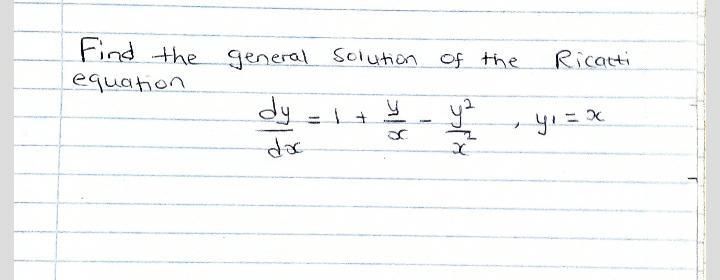 Find the general Solution of the Ricatti
equation
dy/dx = 1 + y/x - y²/x² , y₁ = x